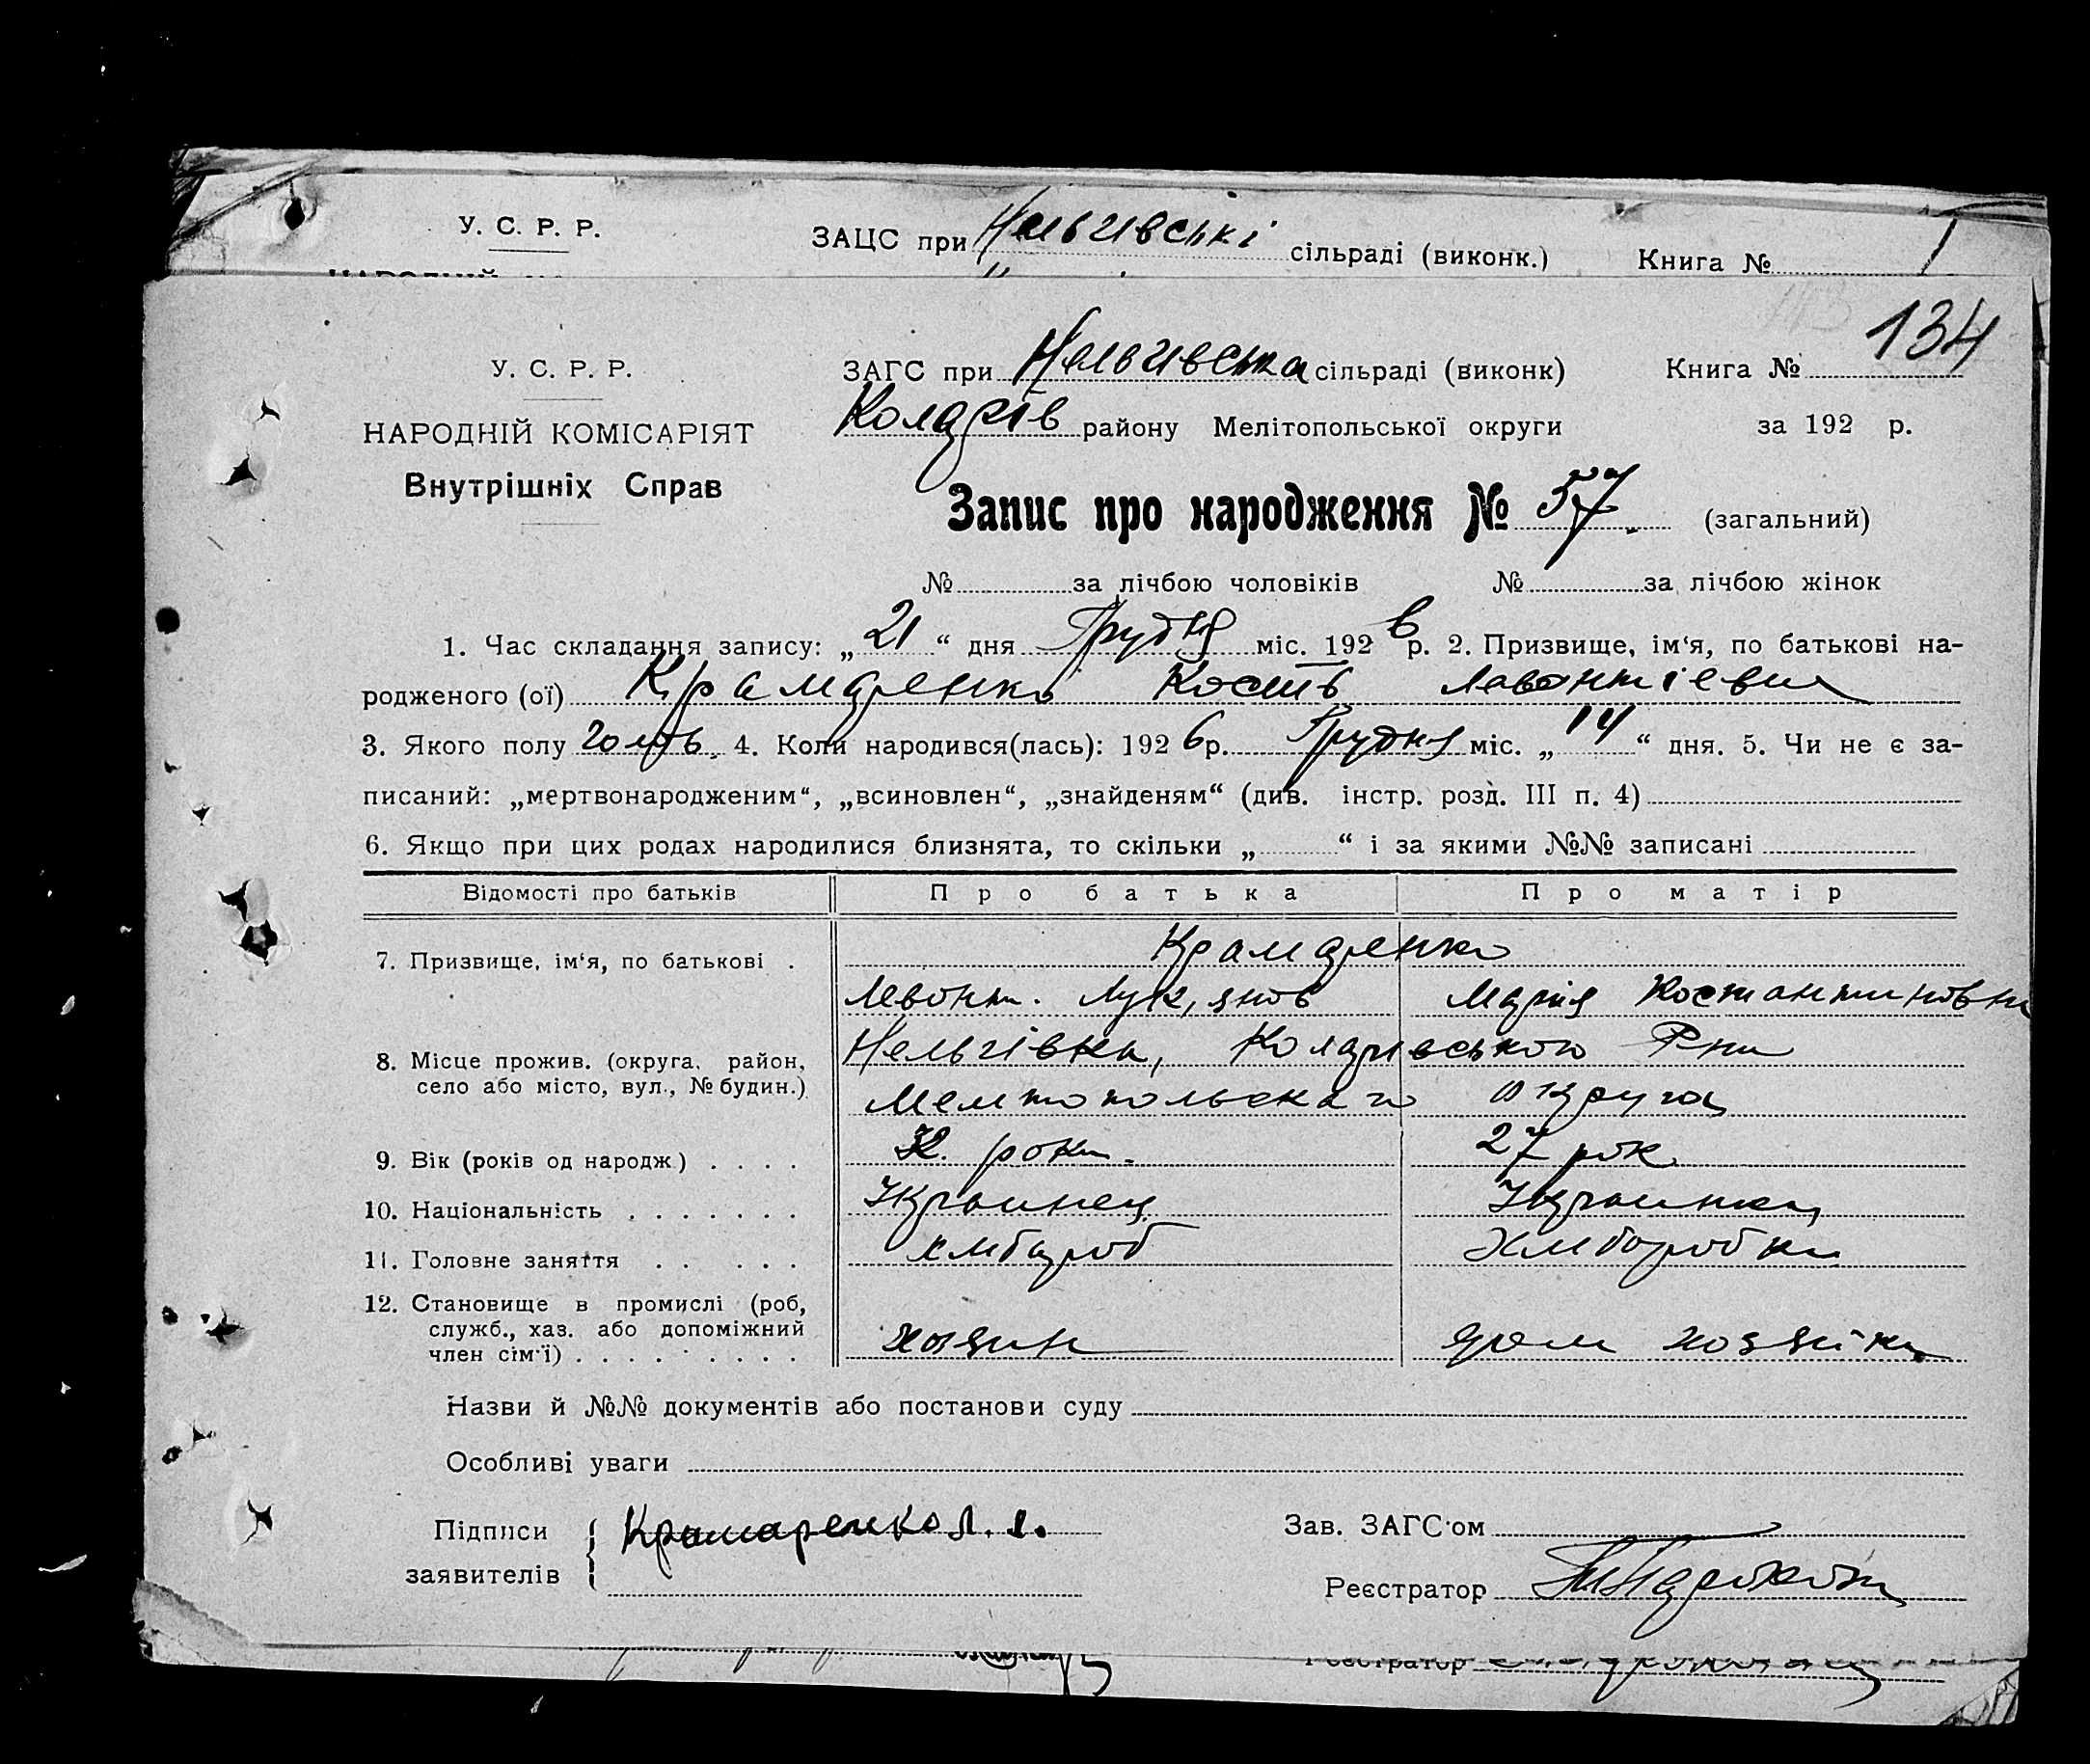 У. С. Р. Р. ЗАЦС при Нельгивські сільраді (виконк.) Книга № 1
134
У. С. Р. Р. ЗАГС при Нельгивська сільраді (виконк) Книга №
НАРОДНІЙ КОМІСАРІЯТ Коларів району Мелітопольської округи за 192 р.
Внутрішніх Справ
Запис про народження № 57. (загальний)
№ за лічбою чоловіків № за лічбою жінок
1. Час складання запису: „21“ дня Грудня міс. 1926 р. 2. Призвище, ім‘я, по батькові на-
родженого (ої) Крамаренко Кость Левонтіевич
3. Якого полу 4. Коли народився(лась): 1926 р. Грудня міс. „14“ дня. 5. Чи не є за-
писаний: „мертвонародженим“, „всиновлен“, „знайденям“ (див. інстр. розд. III п. 4)
6. Якщо при цих родах народилися близнята, то скільки „ “ і за якими №№ записані
Відомості про батьків Про батька Про матір
7. Призвище, ім‘я, по батькові . Крамаренко
Левонт. Лук,янов Мария Костантиновна
8. Місце прожив. (округа, район, Нельгівка, Коларивського Рна
село або місто, вул., № будин.) Мелитопольскаго округа
9. Вік (років од народж) . . . . роки. 27 рок.
10. Національність . . . . . . . Украинец Украинка
11. Головне заняття . . . . . хлібароб хлибаробка
12. Становище в промислі (роб,
служб., хаз. або допоміжний
член сім‘ї) . . . . . . . . . хозяин дом хозяйка
Назви й №№ документів або постанови суду
Особливі уваги
Підписи Крамаренко Л. Л. Зав. ЗАГС‘ом
заявителів Реєстратор
Реєстратор